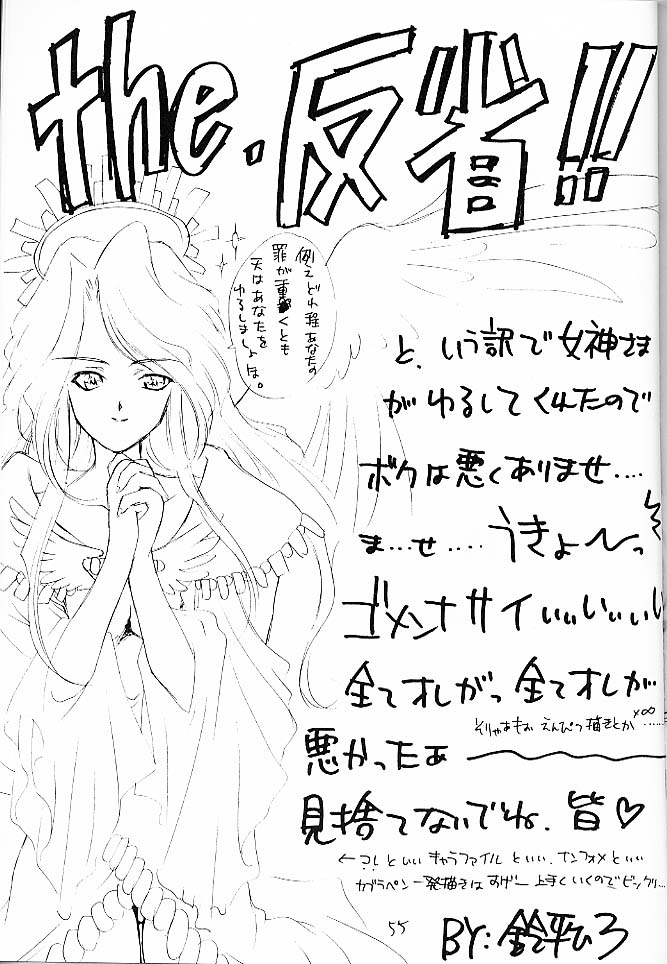 the・反省!!
例えどれ程あなたの
罪が重くとも
天はあなたを
ゆるしましょぅ。
と、いう訳で女神さま
がゆるしてくれたので
ボクは悪くありませ‥‥
ま…せ‥‥うきょ〜っ
ゴメンナサイぃぃぃぃぃ
全てオレがっ全てオレが…
そりゃあもぉえんぴつ描きとか×∞……
悪かったぁ
見捨てないでね、皆♡
←?!といいキャラファイルといい、ナンフォメといい
ガラペン一発描きはすげー上手くいくのでビックリ…
55
BY:鈴平ひろ